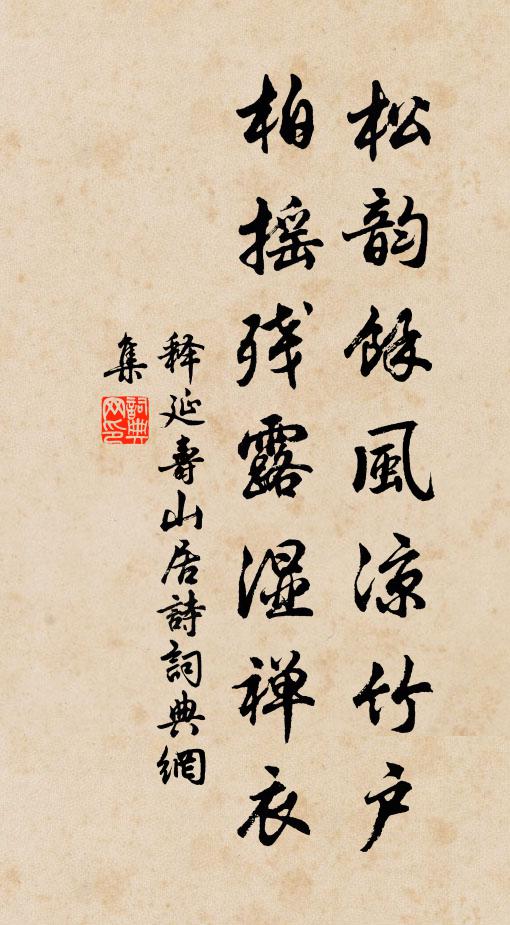 松韵餘風凉竹户
柏摇残露湿禅衣
释延壽山居詩詞典網
集
詞典网印